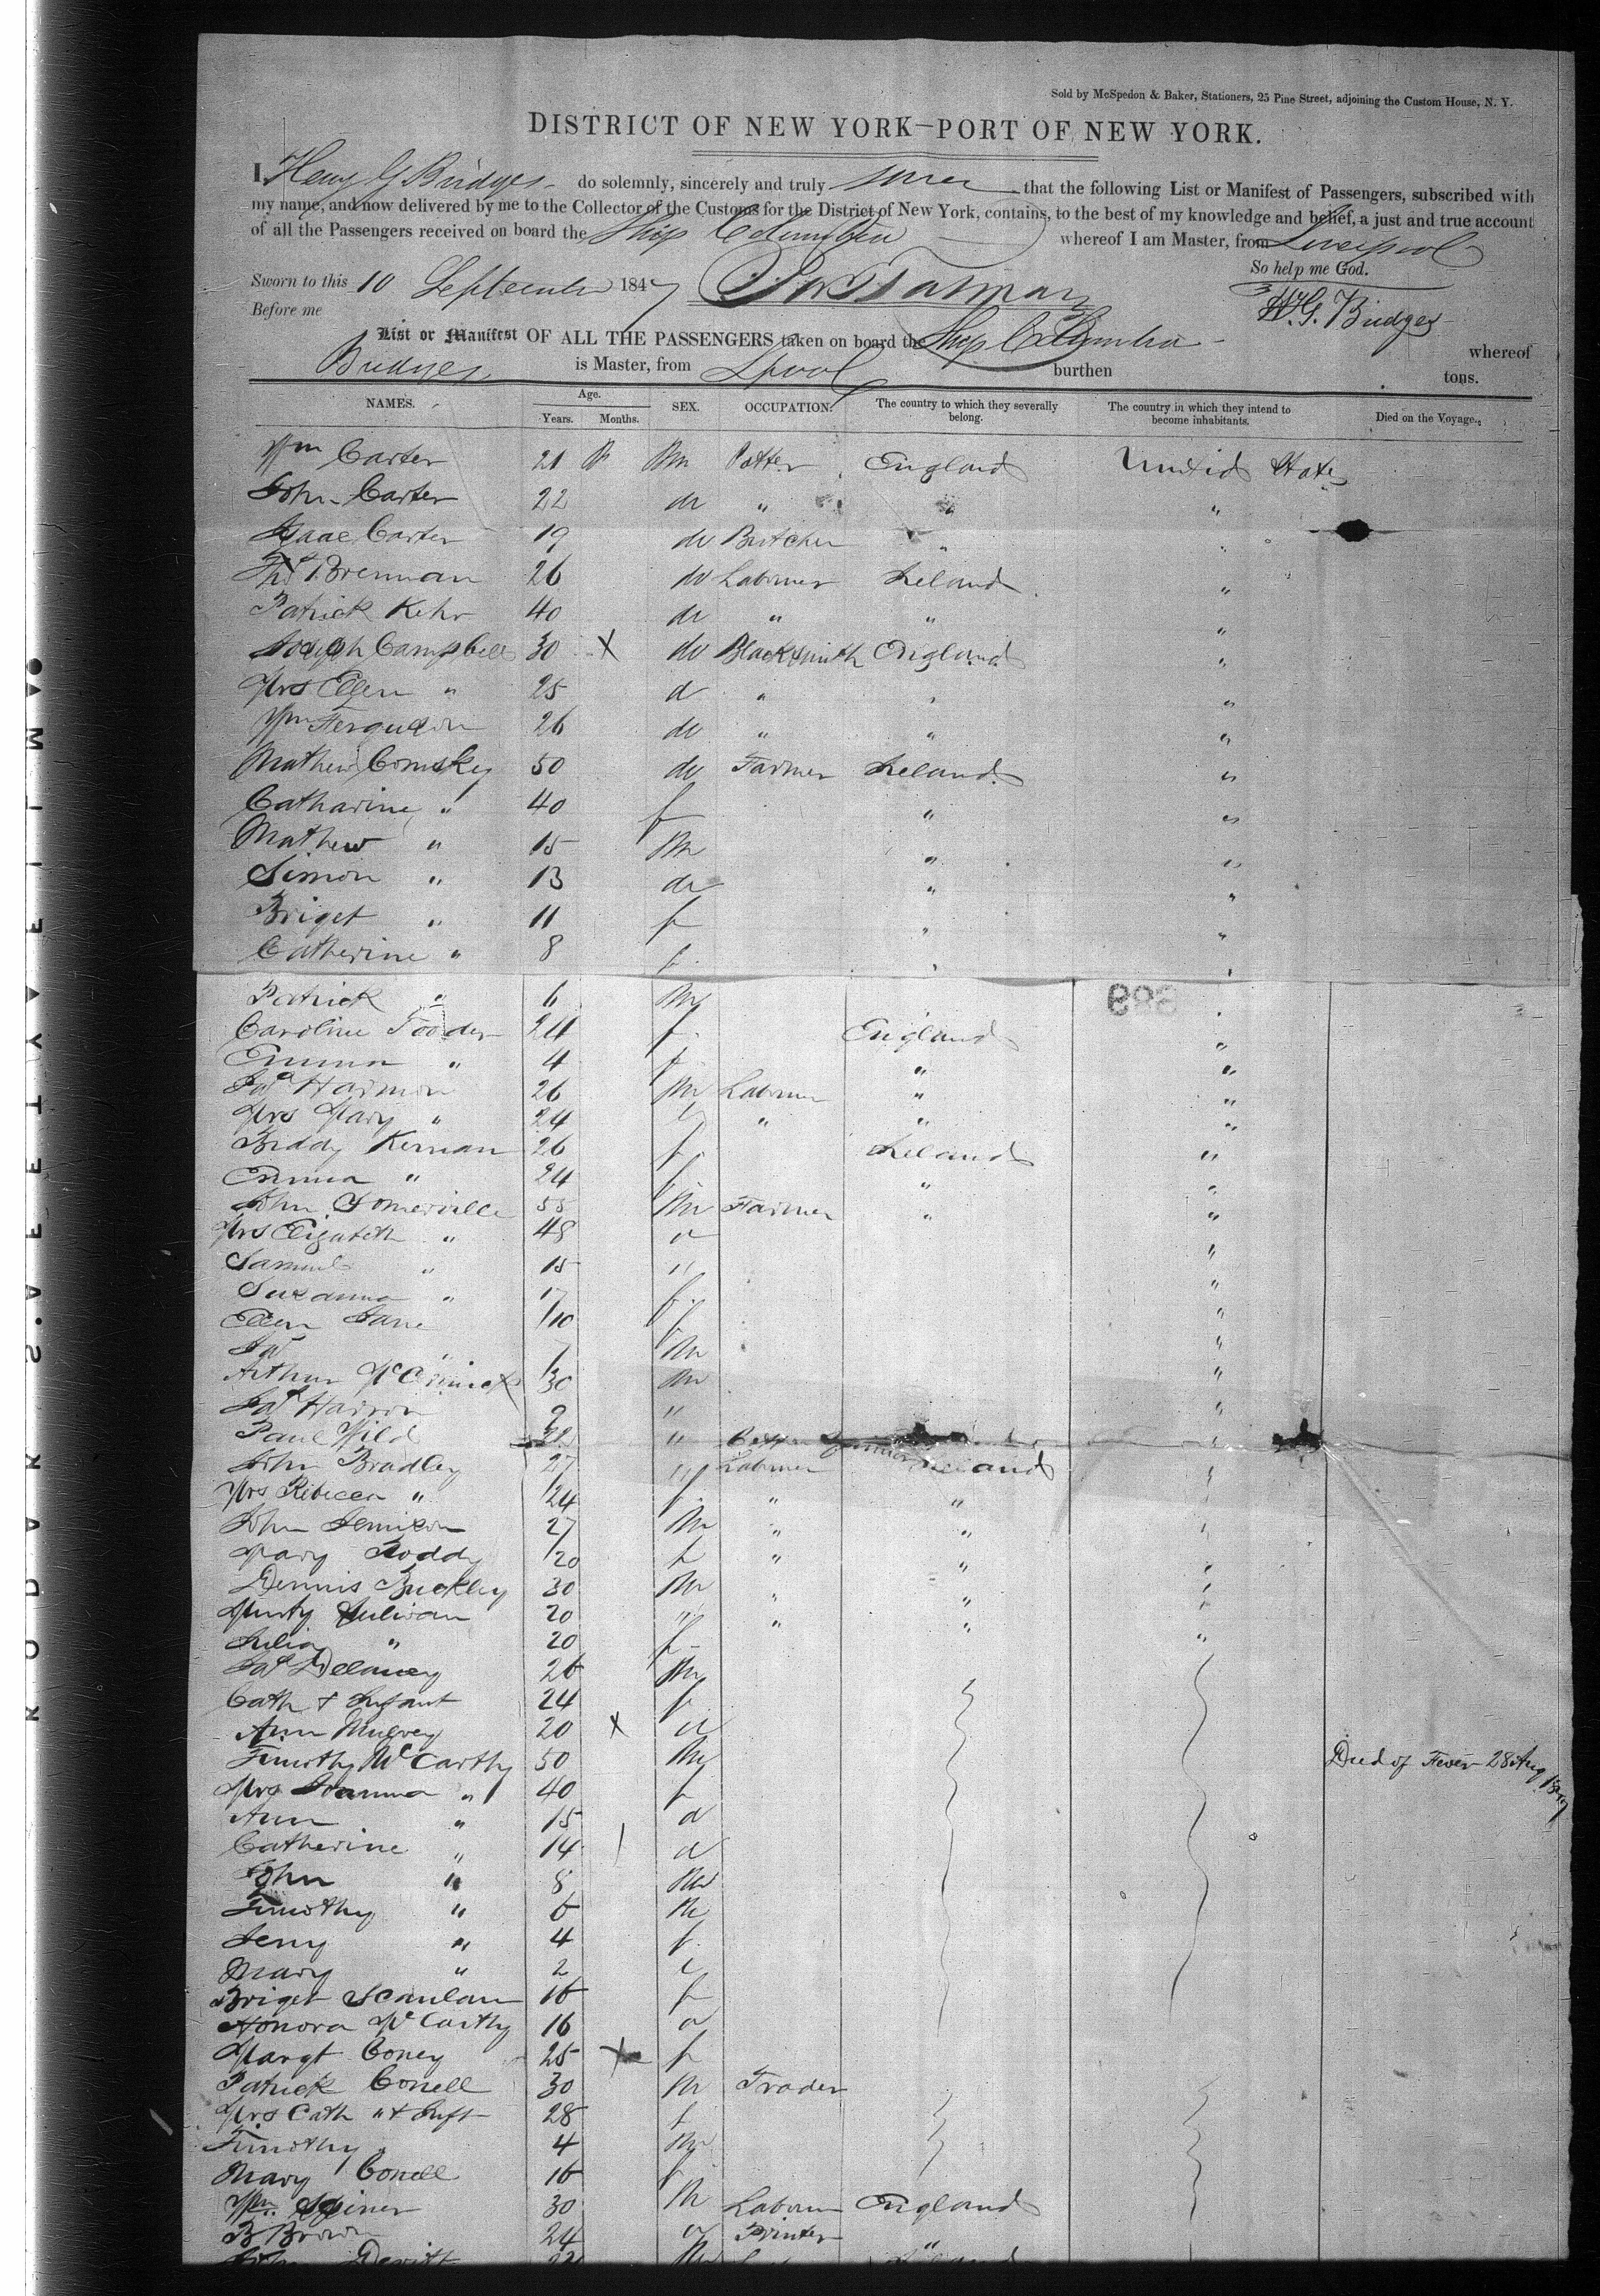 Sold by McSpedon & Baker, Stationers, 25 Pine Street, adjoining the Custom House, N. Y.
DISTRICT OF NEW YORK—PORT OF NEW YORK.
I, Henry G Bridges do solemnly, sincerely and truly swear that the following List or Manifest of Passengers, subscribed with
my name, and now delivered by me to the Collector of the Customs for the District of New York, contains, to the best of my knowledge and belief, a just and true account
of all the Passengers received on board the Ship Columbia whereof I am Master, from Liverpool
So help me God.
Sworn to this 10 September 1847
H. G. Bridges
Before me
List or Manifest OF ALL THE PASSENGERS taken on board the Ship Columbia whereof
Bridges is Master, from Lpool burthen tons.
NAMES. Age. Years. Months. SEX. OCCUPATION. The country to which they severally belong. The country in which they intend to become inhabitants. Died on the Voyage.
Wm Carter 21 M Potter England United States
John Carter 22 do " " "
Isaac Carter 19 do Butcher " "
Thos Brennan 26 do Labourer Ireland "
Patrick Kehr 40 do " " "
Joseph Campbell 30 X do Blacksmith England "
Mrs Ellen " 25 d " " "
Wm Ferguson 26 do " " "
Mathew Comskey 50 do Farmer Ireland "
Catharine " 40 f " "
Mathew " 15 M " "
Simon " 13 do " "
Briget " 11 f " "
Catherine " 8 f " "
Patrick " 6 M
Caroline Fooder 24 f England "
Emma " 4 f " "
Jas Harmon 26 M Labourer " "
Mrs Mary " 24 " " "
Biddy Kernan 26 f Ireland "
Emma " 24 f " "
John Somerville 55 M Farmer " "
Mrs Elizabeth " 48 "
Samuel " 15 " "
Susanna " 17 f "
Ellen Jane 10 f "
Jas " 7 M "
Arthur McCormick 30 M "
Jas Harron 2 " "
Paul Wild 32 "
John Bradley 27 " Labourer Ireland "
Mrs Rebecca " 24 f " " "
John Jemison 27 M " " "
Mary Roddy 20 f " " "
Dennis Buckley 30 M " " "
Murty Sulivan 20 " " " "
Julia " 20 f "
Jas Delaney 26 M
Cath & Infant 24 f
Ann Mulvey 20 X d
Timothy McCarthy 50 M Died of Fever 28 Aug 1847
Mrs Joanna " 40 f
Ann " 15 d
Catherine " 14 d
John " 8 M
Timothy " 6 M
Jerry " 4 f
Mary " 2
Briget Scanlan 16 f
Honora McCarthy 16 d
Margt Coney 25 X f
Patrick Conell 30 M Trader
Mrs Cath " & Inft 28 f
Timothy " 4 M
Mary Conell 16 f
Wm 30 M Labourer England
B Brown 24 Printer "
John Devitt 22 M